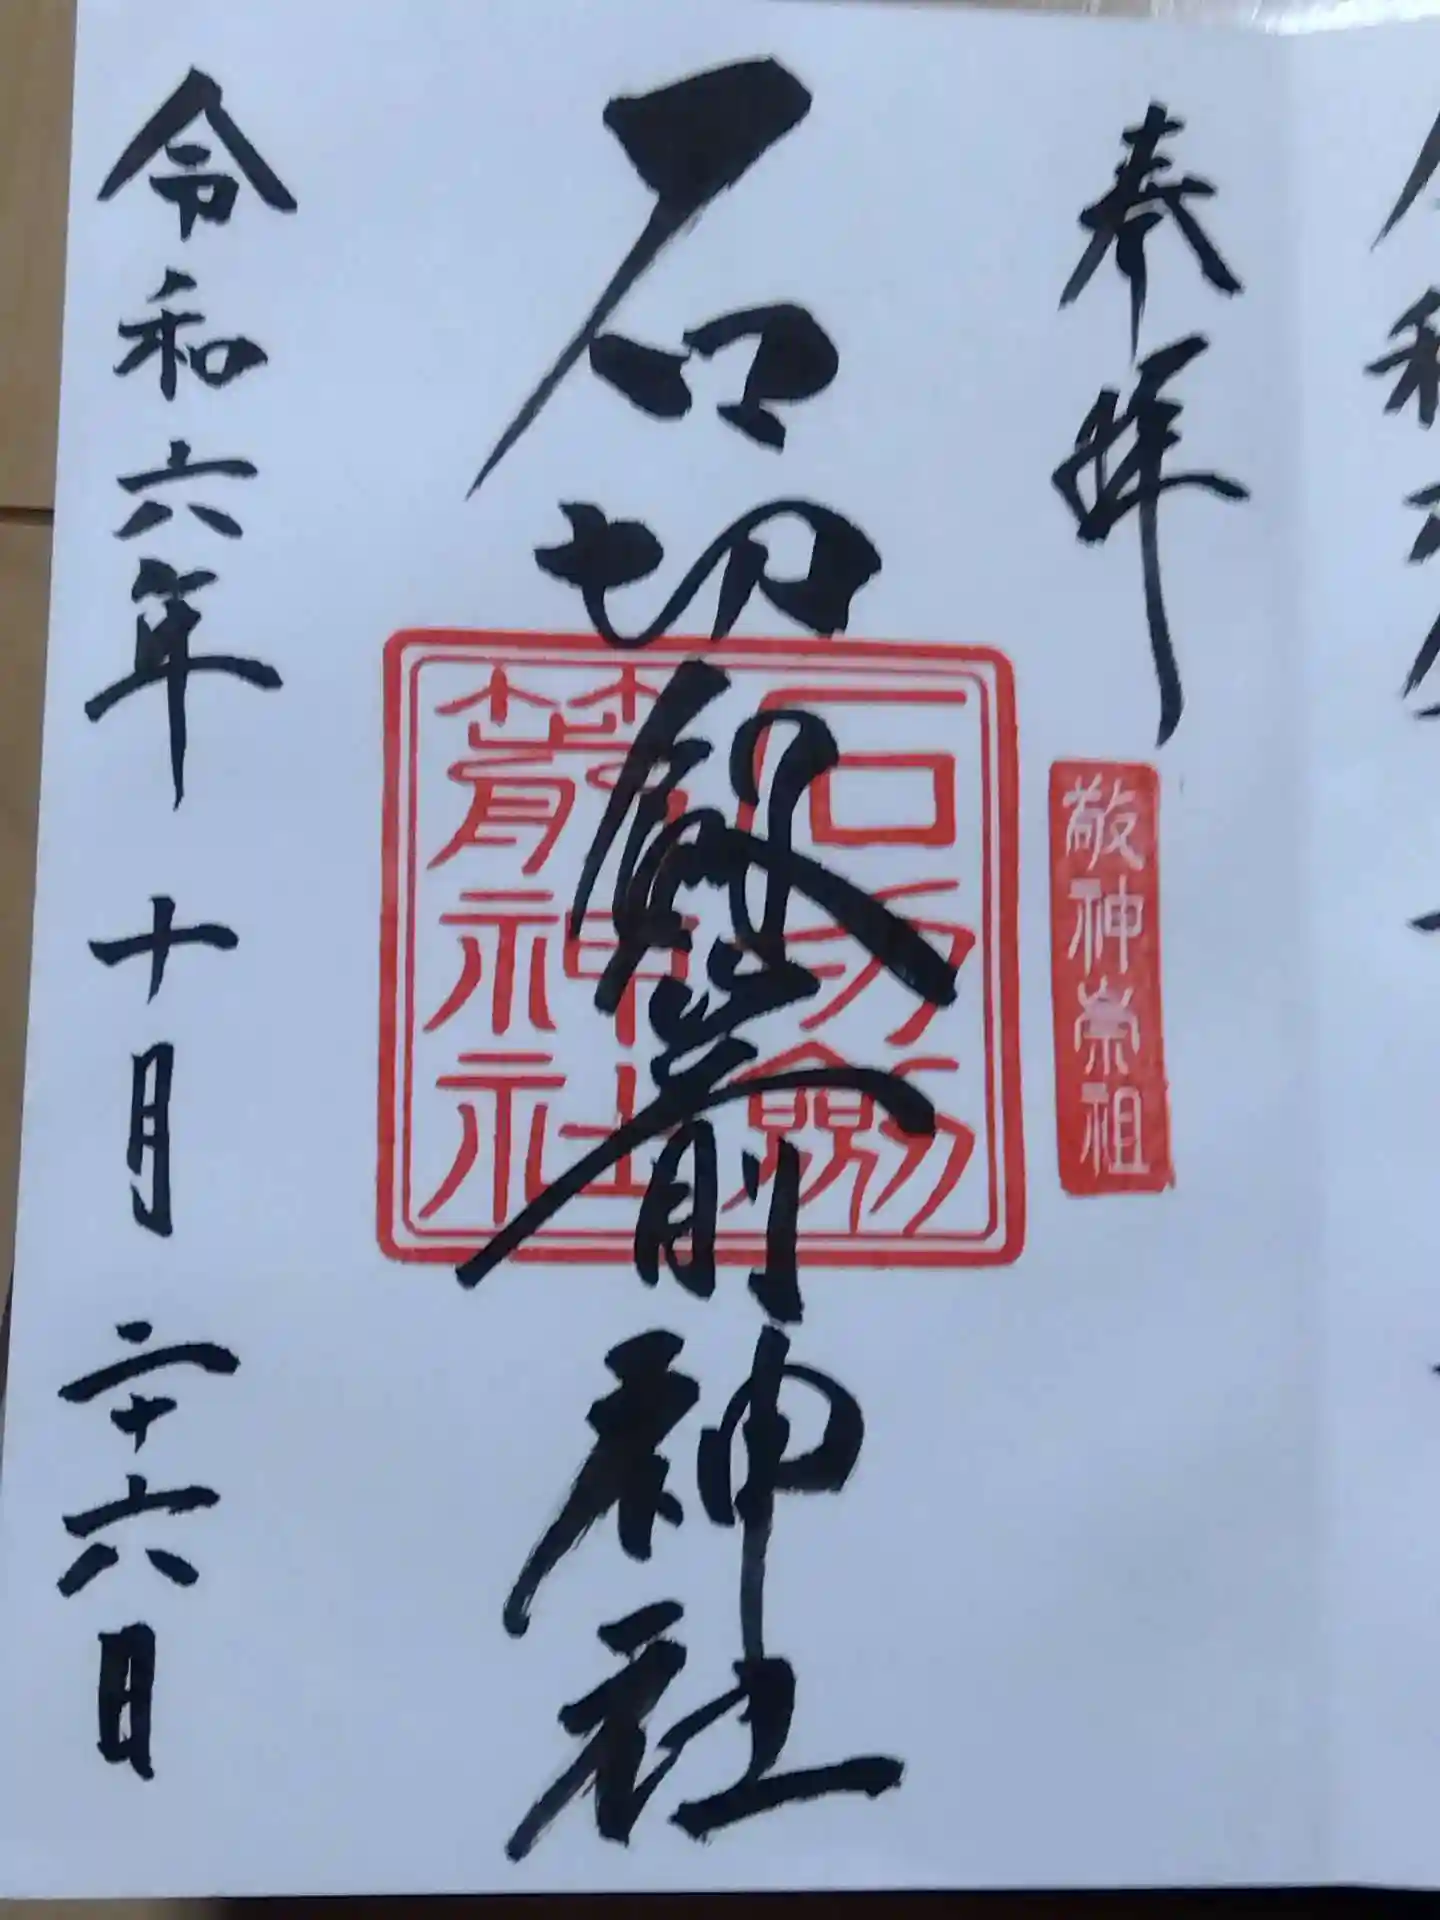 奉拝
敬神崇祖
石切劔箭神社
石切劔
箭神社
令和六年十月二十六日